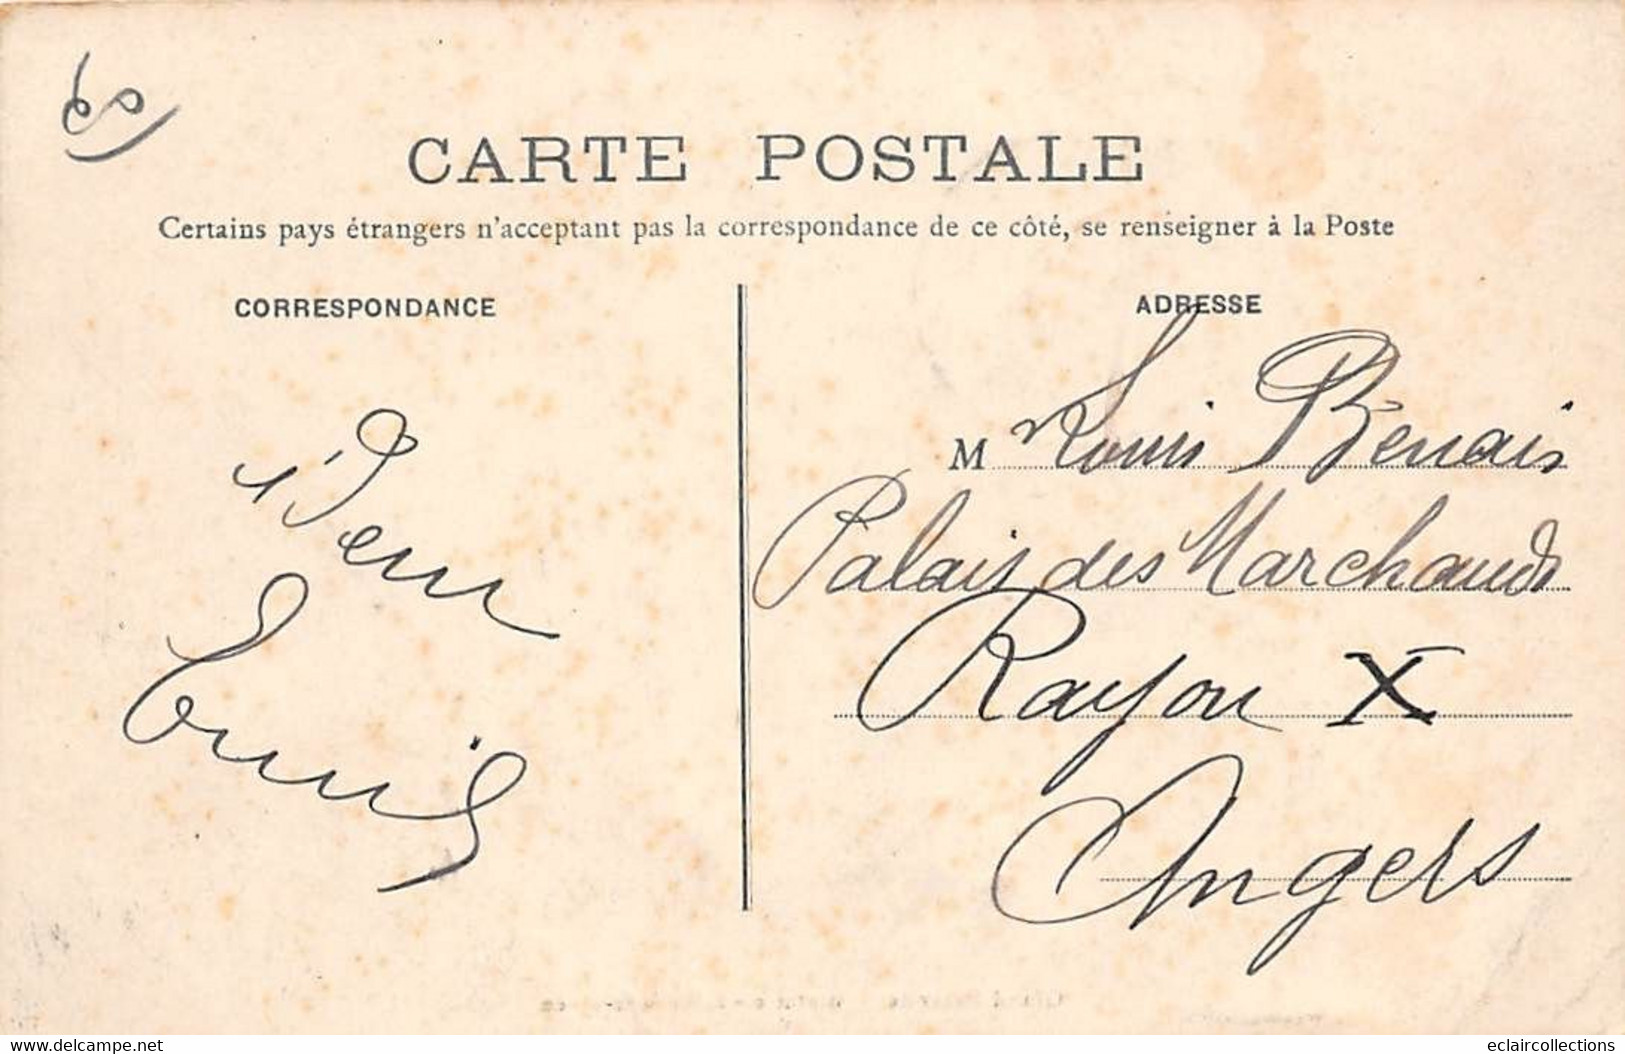 60
CARTE POSTALE
Certains pays étrangers n'acceptant pas la correspondance de ce côté, se renseigner à la Poste
CORRESPONDANCE
ADRESSE
M Louis Benais
Palais des Marchands
Rayon X
Angers
delcampe.net
eclaircollections